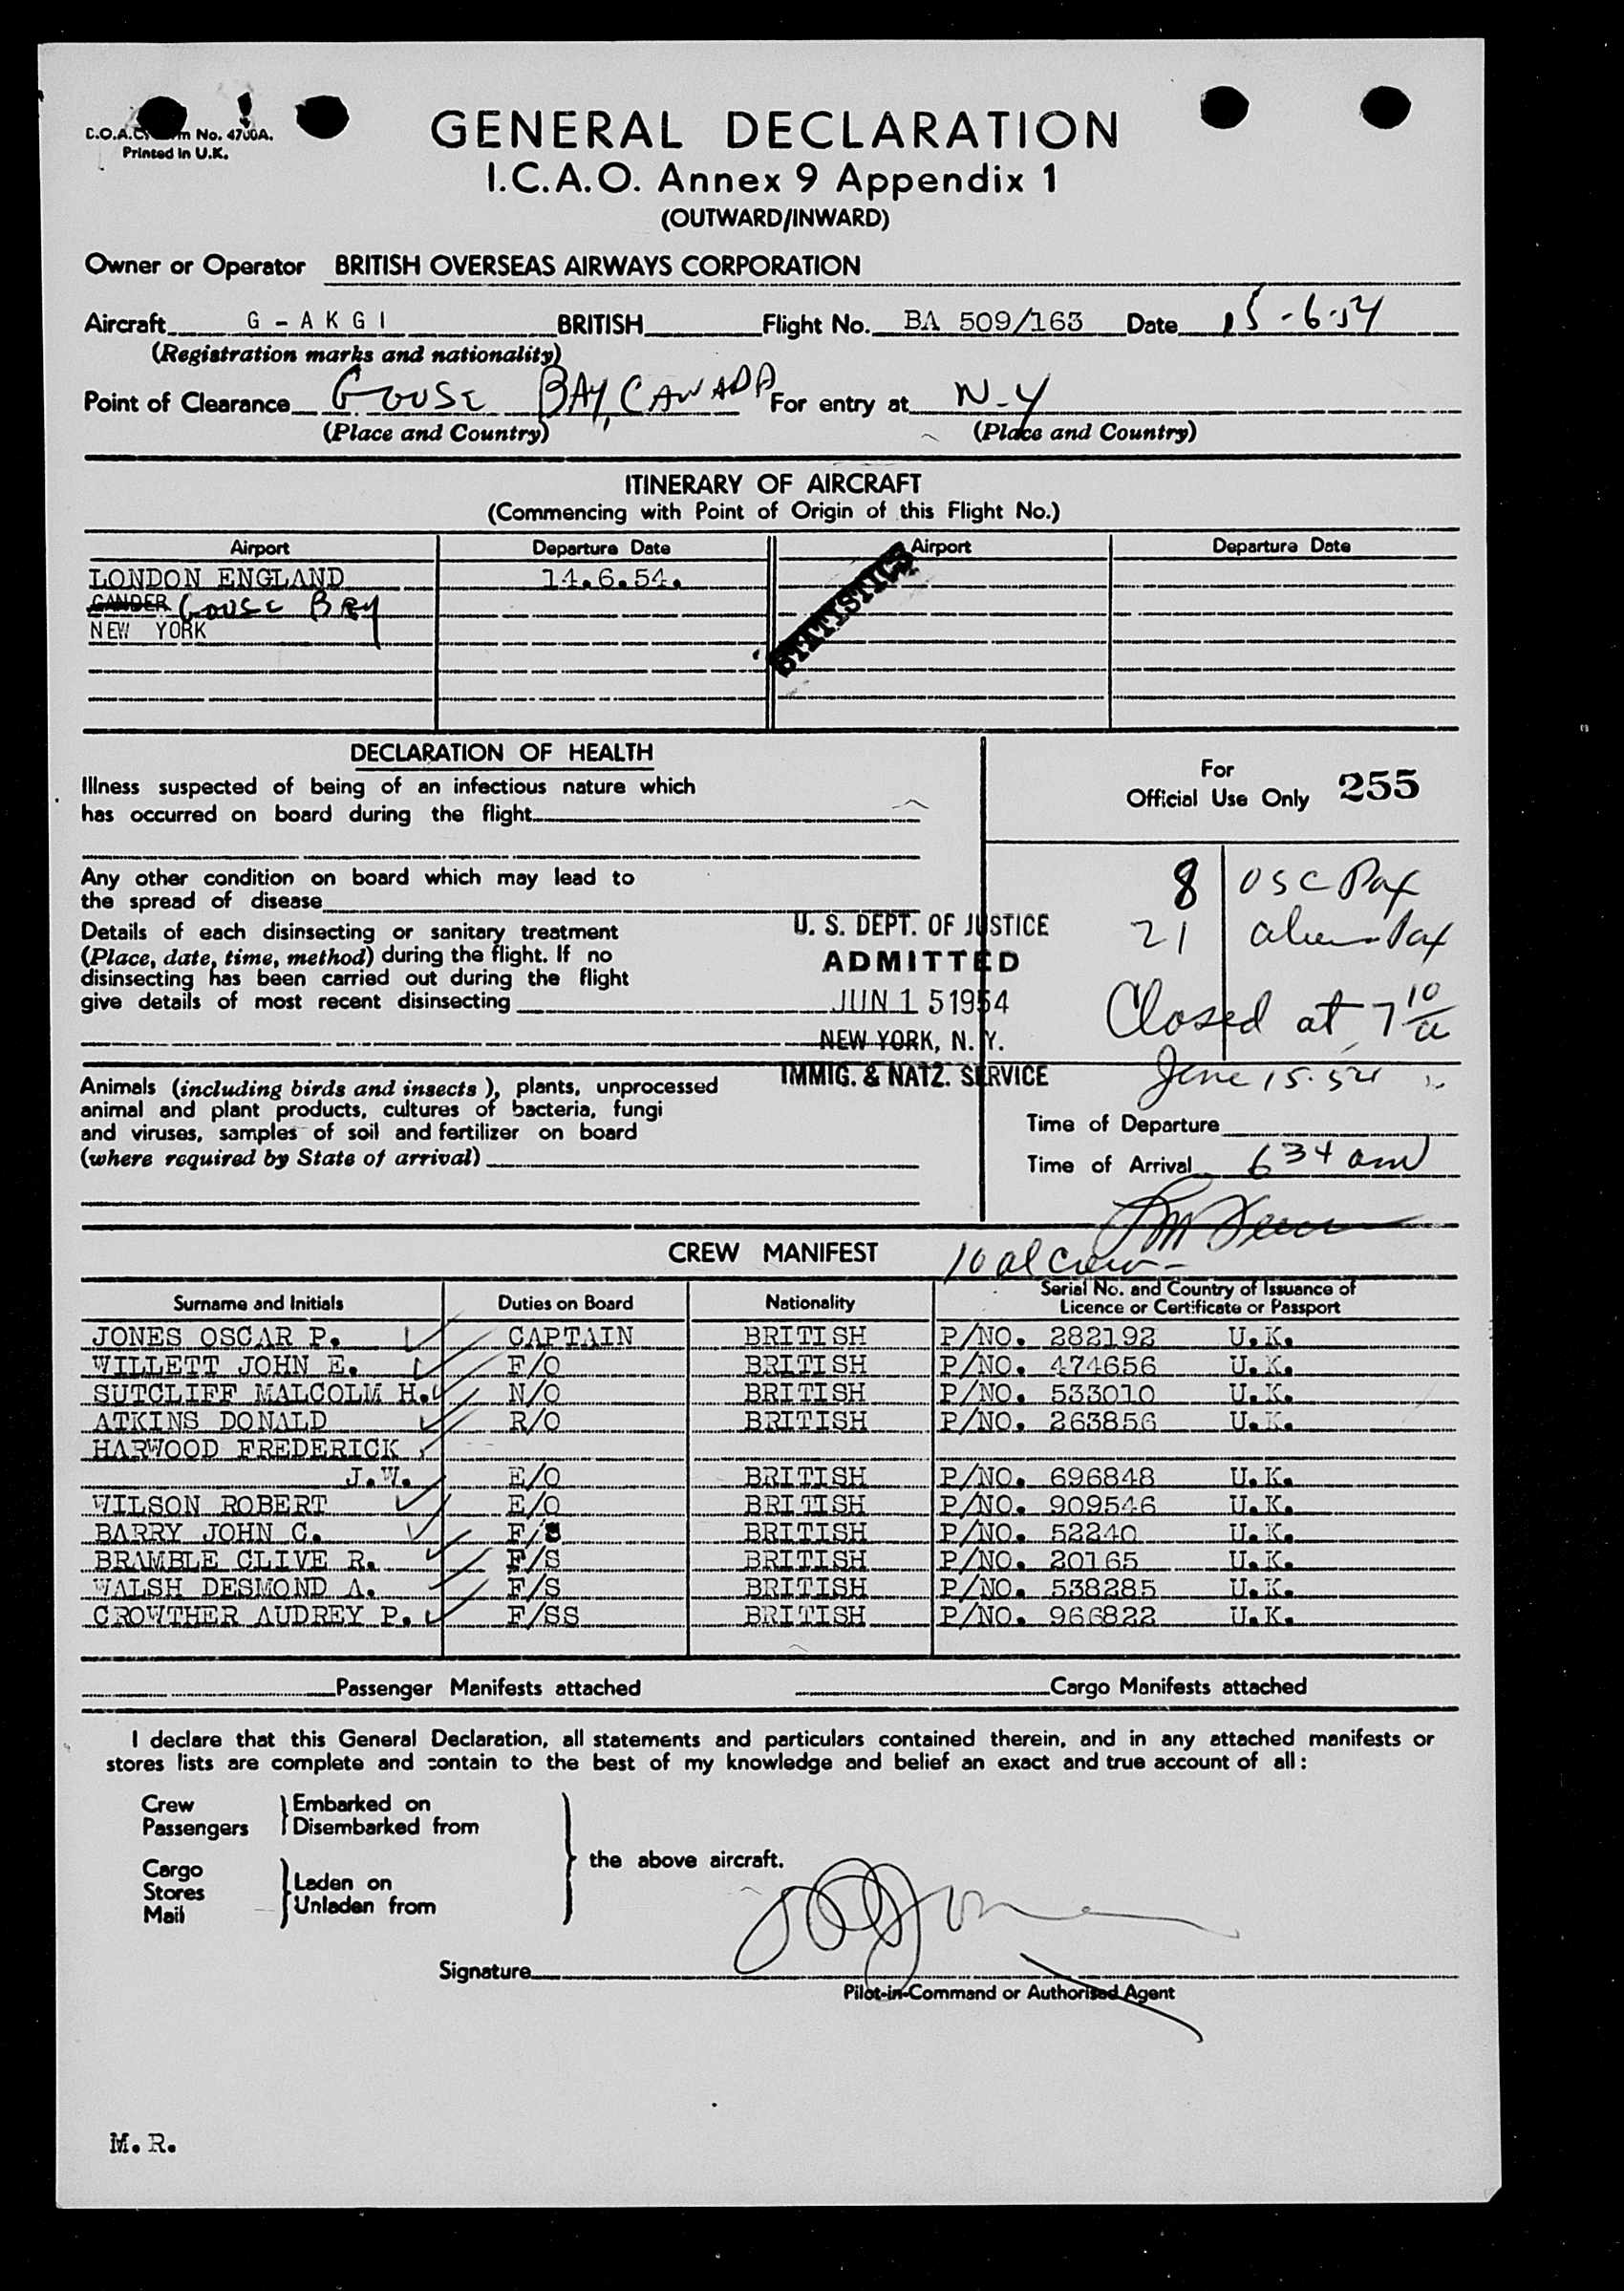 No. 4700A.
Printed in U.K.
GENERAL DECLARATION
I.C.A.O. Annex 9 Appendix 1
(OUTWARD/INWARD)
Owner or Operator BRITISH OVERSEAS AIRWAYS CORPORATION
Aircraft G - A K G I BRITISH Flight No. BA 509/163 Date 15-6-54
(Registration marks and nationality)
Point of Clearance GOOSE BAY, CANADA For entry at N-Y
(Place and Country) (Place and Country)
ITINERARY OF AIRCRAFT
(Commencing with Point of Origin of this Flight No.)
Airport Departure Date Airport Departure Date
LONDON ENGLAND 14.6.54.
GANDER GOOSE BAY
NEW YORK
STATISTICS
DECLARATION OF HEALTH
Illness suspected of being of an infectious nature which
has occurred on board during the flight
For
Official Use Only 255
Any other condition on board which may lead to
the spread of disease
8 USC Pax
21 alien Pax
Details of each disinsecting or sanitary treatment
(Place, date, time, method) during the flight. If no
disinsecting has been carried out during the flight
give details of most recent disinsecting
U. S. DEPT. OF JUSTICE
ADMITTED
JUN 15 1954
NEW YORK, N. Y.
IMMIG. & NATZ. SERVICE
Closed at 7 10/a
June 15.54
Animals (including birds and insects), plants, unprocessed
animal and plant products, cultures of bacteria, fungi
and viruses, samples of soil and fertilizer on board
(where required by State of arrival)
Time of Departure
Time of Arrival 6 34 am
CREW MANIFEST 10 al crew-
Surname and Initials Duties on Board Nationality Serial No. and Country of Issuance of
Licence or Certificate or Passport
JONES OSCAR P. CAPTAIN BRITISH P/NO. 282192 U.K.
WILLETT JOHN E. F/O BRITISH P/NO. 474656 U.K.
SUTCLIFF MALCOLM H. N/O BRITISH P/NO. 533010 U.K.
ATKINS DONALD R/O BRITISH P/NO. 263856 U.K.
HARWOOD FREDERICK
J.W. E/O BRITISH P/NO. 696848 U.K.
WILSON ROBERT E/O BRITISH P/NO. 909546 U.K.
BARRY JOHN C. F/S BRITISH P/NO. 52240 U.K.
BRAMBLE CLIVE R. F/S BRITISH P/NO. 20165 U.K.
WALSH DESMOND A. F/S BRITISH P/NO. 538285 U.K.
CROWTHER AUDREY P. F/SS BRITISH P/NO. 966822 U.K.
Passenger Manifests attached Cargo Manifests attached
I declare that this General Declaration, all statements and particulars contained therein, and in any attached manifests or
stores lists are complete and contain to the best of my knowledge and belief an exact and true account of all:
Crew Embarked on
Passengers Disembarked from
the above aircraft.
Cargo
Stores Laden on
Mail Unladen from
Signature
Pilot-in-Command or Authorised Agent
M. R.